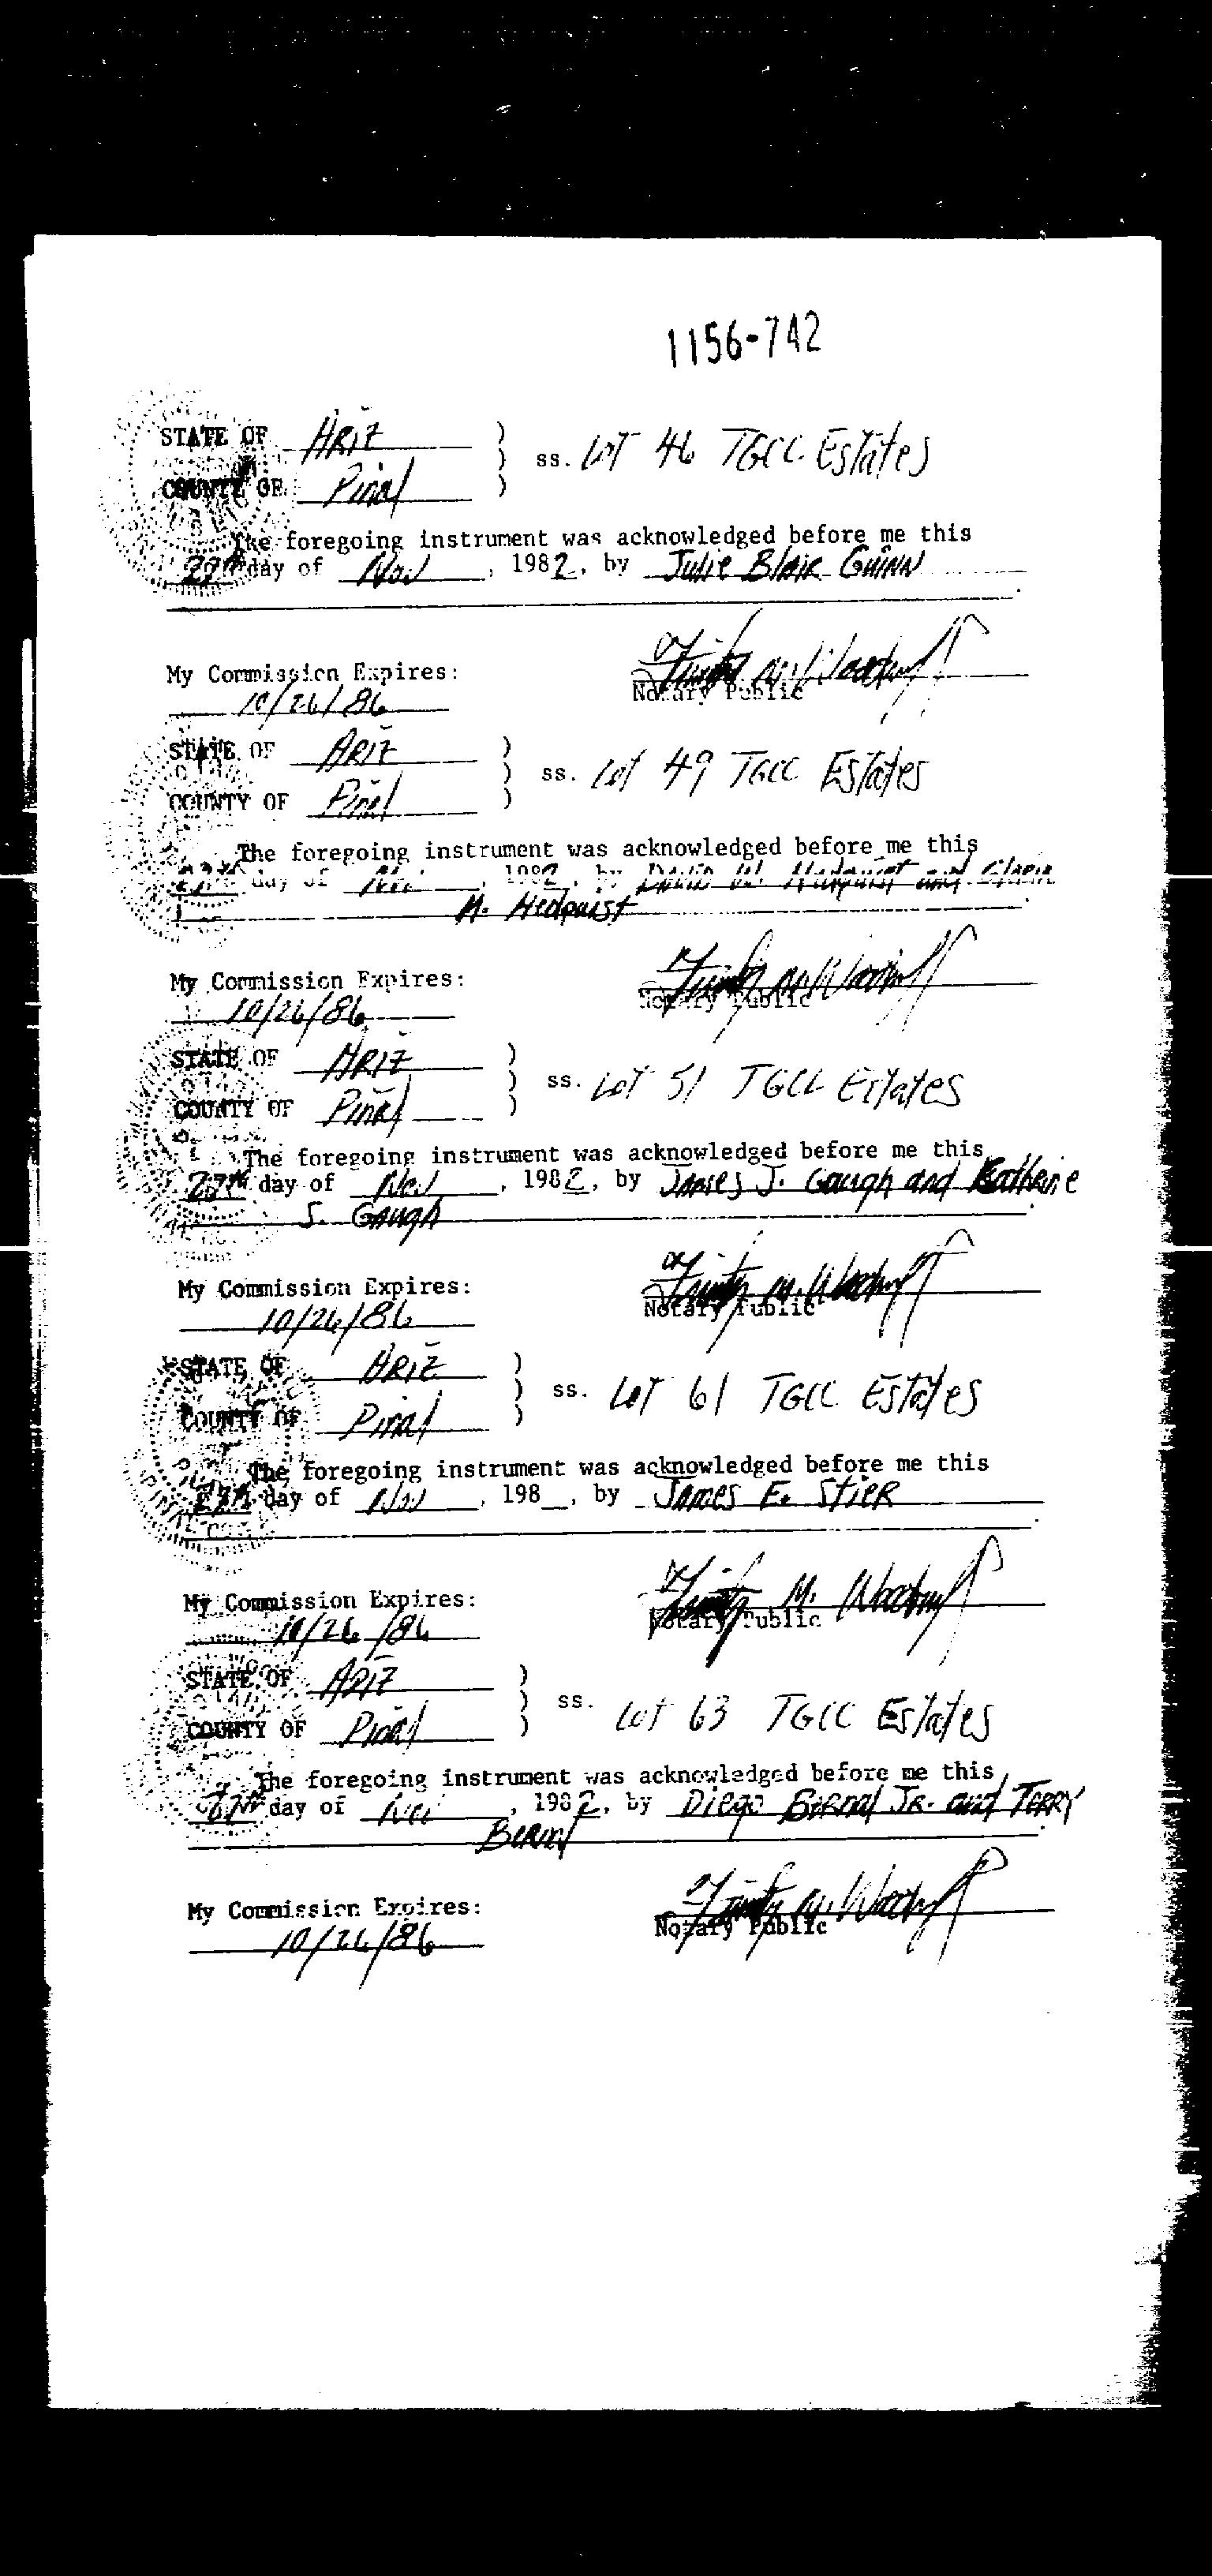 1156-742
STATE OF ARIZ ) ss. Lot 46 TGCC Estates
COUNTY OF Pinal )
The foregoing instrument was acknowledged before me this
27th day of Nov, 1982, by Julie Blair Guinn
My Commission Expires:
10/26/86
Notary Public
STATE OF ARIZ ) ss. Lot 49 TGCC Estates
COUNTY OF Pinal )
The foregoing instrument was acknowledged before me this
27th day of Nov, 1982, by David W. Hedquist and Gloria
M. Hedquist
My Commission Expires:
10/26/86
Notary Public
STATE OF ARIZ ) ss. Lot 51 TGCC Estates
COUNTY OF Pinal )
The foregoing instrument was acknowledged before me this
27th day of Nov, 1982, by James J. Gaugh and Katherine
S. Gaugh
My Commission Expires:
10/26/86
Notary Public
STATE OF ARIZ ) ss. Lot 61 TGCC Estates
COUNTY OF Pinal )
The foregoing instrument was acknowledged before me this
27th day of Nov, 198_, by James E. Stier
My Commission Expires:
10/26/86
Notary Public
STATE OF ARIZ ) ss. Lot 63 TGCC Estates
COUNTY OF Pinal )
The foregoing instrument was acknowledged before me this
day of Nov, 1982, by Diego Bernal Jr. and Terry
Bernal
My Commission Expires:
10/26/86
Notary Public